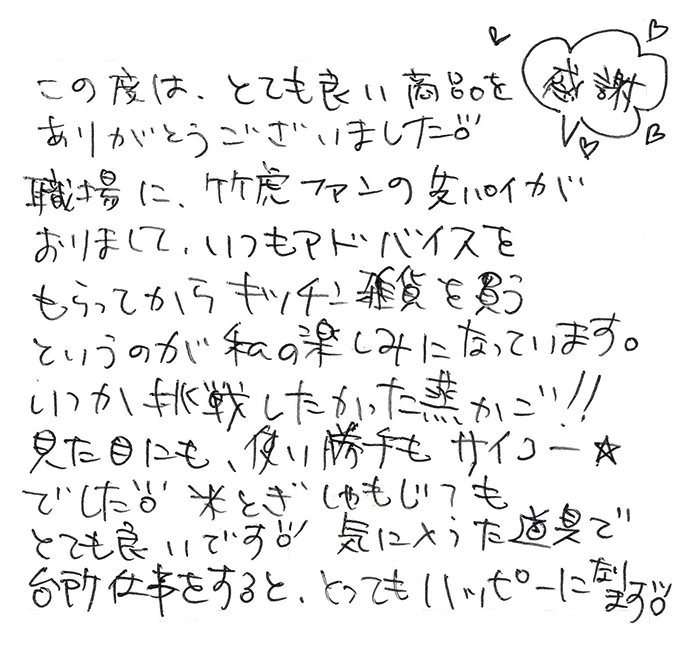 この度は、とても良い商品を
感謝
ありがとうございました!!
職場に、竹虎ファンの先パイが
おりまして、いつもアドバイスを
もらってからキッチン雑貨を買う
というのが私の楽しみになっています。
いつか挑戦したかった蒸かご!!
見た目にも、使い勝手もサイコー☆
でした!! 米とぎしゃもじても
とても良いです!! 気に入った道具で
台所仕事をすると、とってもハッピーになります!!